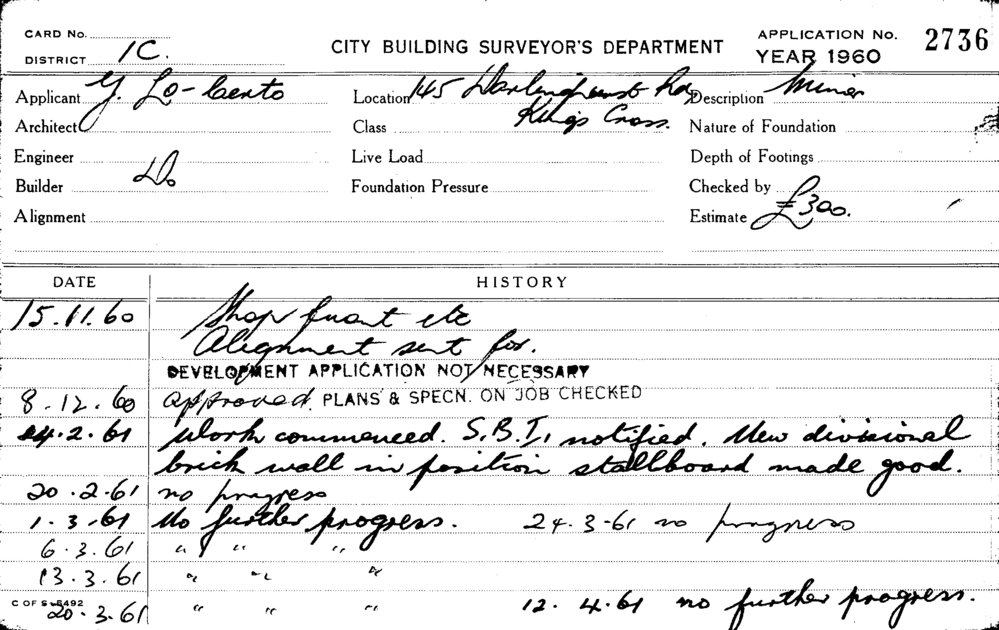 CARD No.
DISTRICT 1C.
CITY BUILDING SURVEYOR'S DEPARTMENT
APPLICATION No. 2736
YEAR 1960
Applicant Y. Lo-Certo
Location 145 Darlinghurst Rd,
Kings Cross.
Description Minor
Architect
Class
Nature of Foundation
Engineer
Live Load
Depth of Footings
Builder Do
Foundation Pressure
Checked by
Alignment
Estimate £300.
DATE HISTORY
15.11.60 Shop front etc
Alignment sent for.
DEVELOPMENT APPLICATION NOT NECESSARY
8.12.60 approved. PLANS & SPECN. ON JOB CHECKED
4.2.61 Work commenced. S.B.I. notified. New divisional
brick wall in position stallboard made good.
20.2.61 no progress
1.3.61 No further progress. 24.3.61 no progress
6.3.61 " " "
13.3.61 " " "
C OF S 8492
20.3.61 " " " 12.4.61 no further progress.